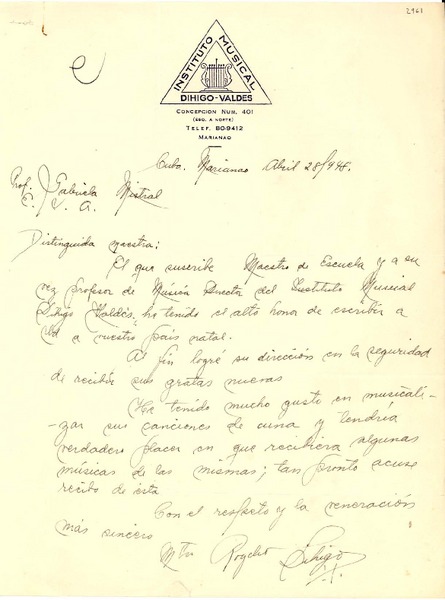 2963
INSTITUTO MUSICAL
DIHIGO-VALDES
CONCEPCION NUM. 401
(ESQ. A NORTE)
TELEF. BO-9412
MARIANAO
Cuba. Marianao Abril 28/948.
Prof. Gabriela Mistral
E. U. A.
Distinguida maestra:
El que suscribe Maestro de Escuela y a su
vez profesor de Música Director del Instituto Musical
Dihigo Valdés, ho tenido el alto honor de escribir a
Ud a vuestro país natal.
Al fin logré su dirección en la seguridad
de recibir sus gratas nuevas
He tenido mucho gusto en musicali-
-zar sus canciones de cuna y tendría
verdadero placer en que recibiera algunas
músicas de las mismas; tan pronto acuse
recibo de esta
Con el respeto y la veneración
más sincero
Mtro Rogelio Dihigo